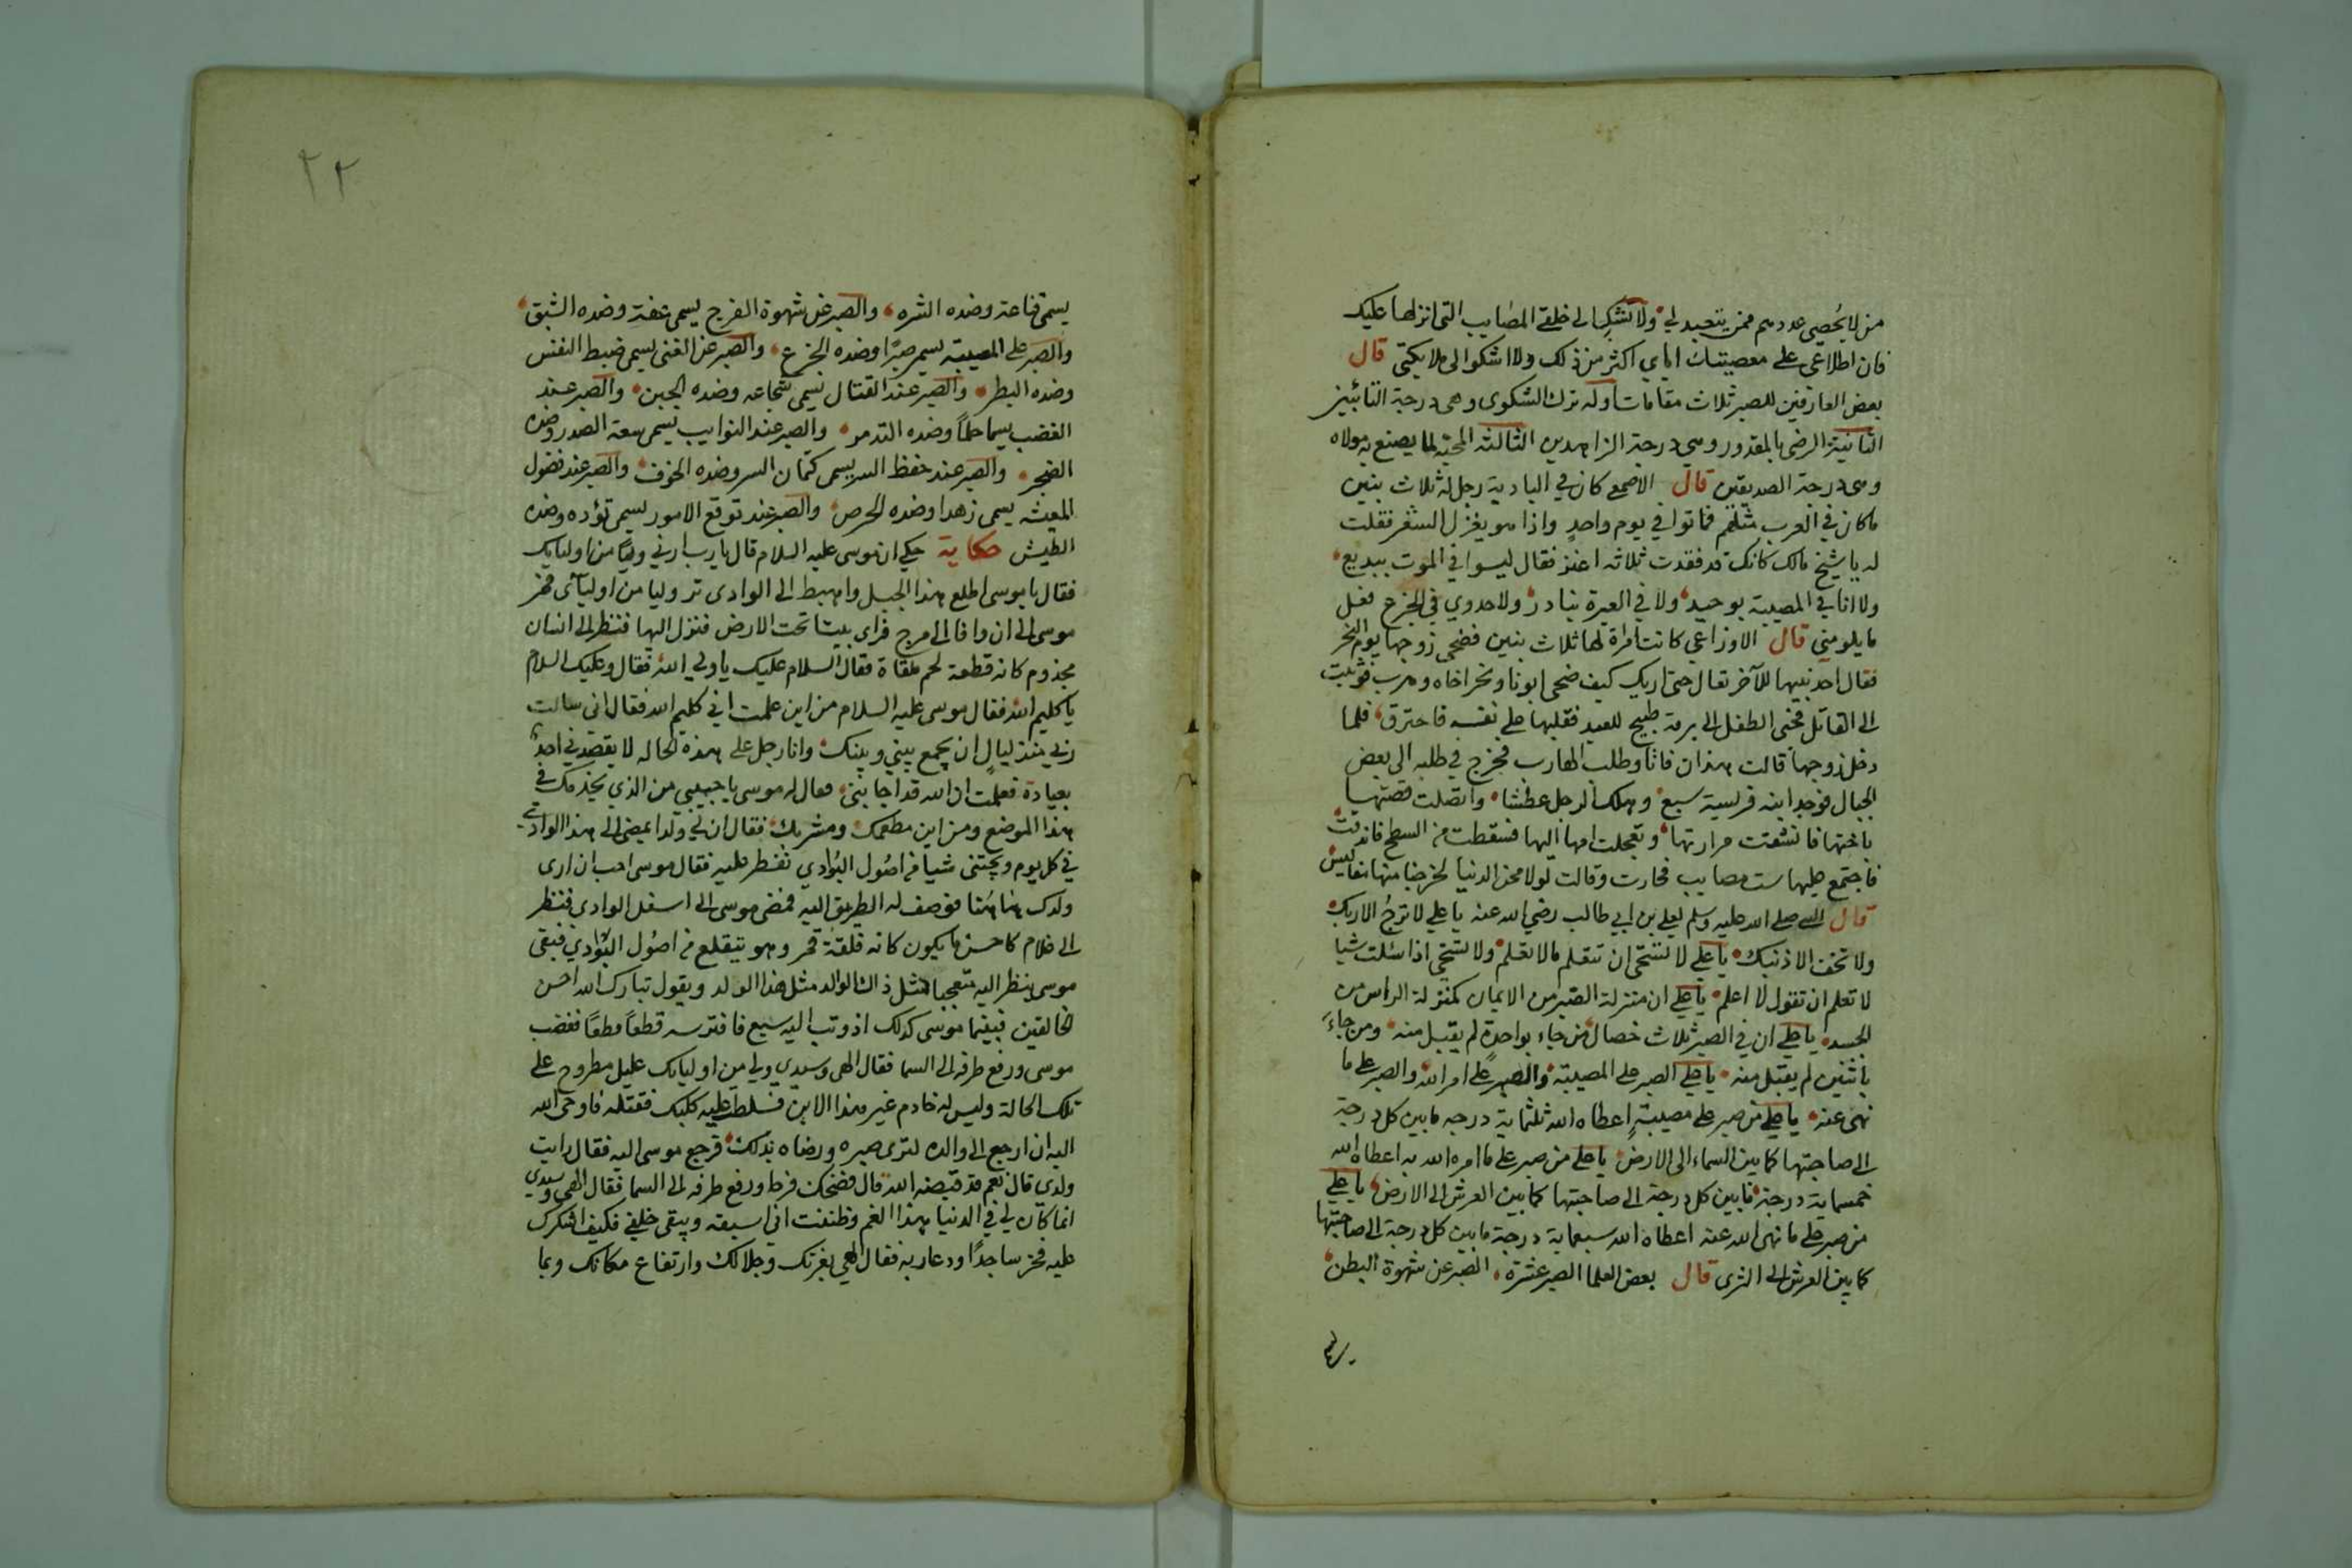 من لا يُحصي عددهم ممن يتعبد لي ولا تشكِ الى خلقي المصايب التي انزلها عليك
فان اطلاعي على معصيتك اياي اكثر من ذلك ولا اشكوا الى ملايكتي قال
بعض العارفين للصبر ثلاث مقامات اوله ترك الشكوى وهي درجة التائبين
الثانية الرضى بالمقدور وهي درجة الزاهدين الثالثه المحبة لما يصنع به مولاه
وهي درجة الصديقين قال الاصمعي كان في البادية رجل له ثلاث بنين
ما كان في العرب مثلهم فماتوا في يوم واحدٍ واذا هو يغزل الشعر فقلت
له يا شيخ مالك كانك قد فقدت ثلاثه اعنز فقال ليسوا في الموت ببديع
ولا انا في المصيبة بوحيد ولا في العبرة بنادر ولا جدوي في الجزع فعل
ما يلومني قال الاوزاعي كانت امراة لها ثلاث بنين فضحى زوجها يوم النحر
فقال احد بنيهما للآخر تعال حتى اريك كيف ضحى ابونا ونحر اخاه وهرب فوثبت
الى القاتل فحنى الطفل الى برمة طبيخ للعيد فقلبها على نفسه فاحترق فلما
دخل زوجها قالت هذان فاتا وطلب الهارب فخرج في طلبه الى بعض
الجبال فوجد ابنه فريسة سبع وهلك الرجل عطشا واتصلت قصتهما
باختها فانشقت مرارتها وتعجلت امها اليها فسقطت من السطح فاندقت
فاجتمع عليها ست مصايب فحارت وقالت لولا محن الدنيا لخرجنا منها مفاليس
قال النبي صلى الله عليه وسلم لعلي بن ابي طالب رضي الله عنه يا علي لا ترجُ الا ربك
ولا تخف الا ذنبك يا علي لا تستحي ان تتعلم مالا تعلم ولا تستحي اذا سئلت شيا
لا تعلم ان تقول لا اعلم يا علي ان منزلة الصبر من الايمان كمنزلة الراس من
الجسد يا علي ان في الصبر ثلاث خصال من جاء بواحدةٍ لم يقبل منه ومن جاءَ
باثنين لم يقبل منه يا علي الصبر على المصيبة والصبر على امر الله والصبر على ما
نهى عنه يا علي من صبر على مصيبةٍ اعطاه الله ثلثماية درجه ما بين كل درجة
الى صاحبتها كما بين السماء الى الارض يا علي من صبر على ما امره الله به اعطاه الله
خمسماية درجة ما بين كل درجة الى صاحبتها كما بين العرش الى الارض يا علي
من صبر على ما نهى الله عنه اعطاه الله سبعماية درجة ما بين كل درجة الى صاحبتها
كما بين العرش الى الثرى قال بعض العلما الصبر عشرة الصبر عن شهوة البطن
يسمى
٢٢
يسمى قناعة وضده الشره والصبر عن شهوة الفرج يسمى عفة وضده الشبق
والصبر على المصيبة يسمى صبرًا وضده الجزع والصبر عن الغنى يسمى ضبط النفس
وضده البطر والصبر عند القتال يسمى شجاعه وضده الجبن والصبر عند
الغضب يسما حلمًا وضده التدمر والصبر عند النوايب يسمى سعة الصدر وضده
الضجر والصبر عند حفظ السر يسمى كتمان السر وضده الخوف والصبر عند فضول
المعيشه يسمى زهدا وضده الحرص والصبر عند توقع الامور يسمى تؤده وضده
الطيش حكاية حكي ان موسى عليه السلام قال يا رب ارني وليًا من اوليايك
فقال يا موسى اطلع هذا الجبل واهبط الى الوادي تر وليا من اوليآئى فخر
موسى الى ان وافا الى امرج فراى بيتا تحت الارض فنزل اليها فنظر الى انسان
مجذوم كانه قطعة لحم ملقاة فقال السلام عليك يا ولي الله فقال وعليك السلام
يا كليم الله فقال موسى عليه السلام من اين علمت اني كليم الله فقال اني سالت
ربي منذ ليالٍ ان يجمع بيني وبينك وانا رجل على هذه الحاله لا يقصدني احدٌ
بعيادة فعلمت ان الله قد اجابني فقال له موسى يا حبيبي من الذي يخدمك في
هذا الموضع ومن اين مطعمك ومشربك فقال ان لي ولدا يمضى الى هذا الوادي
في كل يوم ويجتنى شيا من اصُول البُوادي نفطر عليه فقال موسى احب ان ارى
ولدك هنا هُنا فوصف له الطريق اليه فمضى موسى الى اسفل الوادي فنظر
الى غلام كاحسن ما يكون كانه فلقةُ قمر وهو يتقلع من اصُول البُوادي فبقى
موسى ينظر اليه متعجبا لمثل ذاك الوالد مثل هذا الولد ويقول تبارك الله احسن
الخالقين فبينما موسى كذلك اذ وثب اليه سبع فافترسه قطعًا قطعًا فغضب
موسى ورفع طرفه الى السما فقال الهى وسيدي ولي من اوليايك عليل مطروح على
تلك الحالة وليس له خادم غير هذا الابن فسلط عليه كلبك فقتله فاوحى الله
اليه ان ارجع الى والده لترى صبره ورضاه بذلك فرجع موسى اليه فقال رايت
ولدي قال نعم قد قبضه الله قال فضحك فرحا ورفع طرفه الى السما فقال الهى وسيدي
انما كان لي في الدنيا هذا الغم وظننت اني اسبقه ويبقى خلفي فكيف اشكرك
عليه فخر ساجدًا ودعا ربه فقال الهي بعزتك وجلالك وارتفاع مكانك وبما